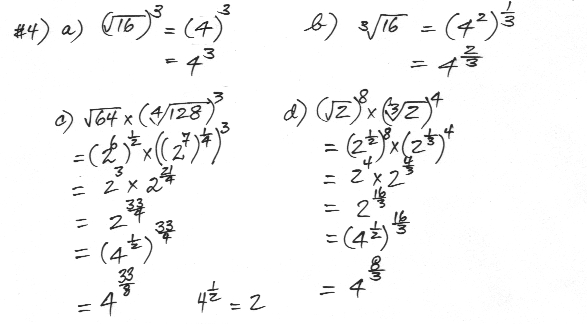 #4) a) (√16)³ = (4)³
= 4³
b) ³√16 = (4²)^(1/3)
= 4^(2/3)
c) √64 × (⁴√128)³
= (2⁶)^(1/2) × ((2⁷)^(1/4))³
= 2³ × 2^(21/4)
= 2^(33/4)
= (4^(1/2))^(33/4)
= 4^(33/8)
4^(1/2) = 2
d) (√2)⁸ × (³√2)⁴
= (2^(1/2))⁸ × (2^(1/3))⁴
= 2⁴ × 2^(4/3)
= 2^(16/3)
= (4^(1/2))^(16/3)
= 4^(8/3)